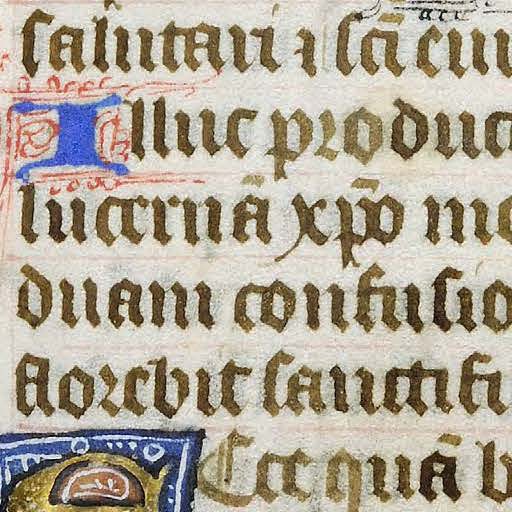 salutari ⁊ scā eius
Illuc produc
lucernā xp̄o me
duam confusio
florebit sanctifi
Ecce quā b